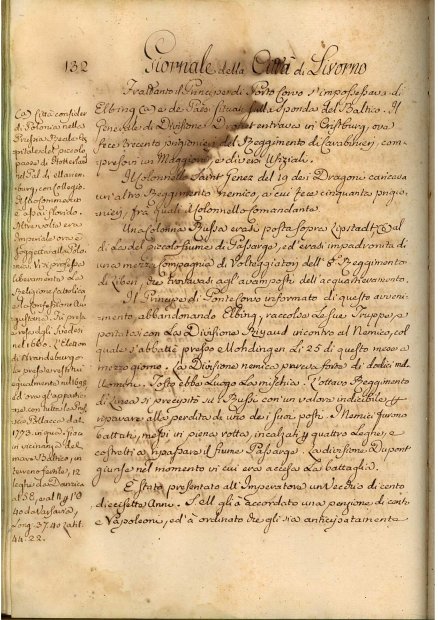 132
Giornale della Città di Livorno
Frattanto il Principe di Ponte Corvo s'impossessava di
Elbing (a) e de Paesi situati sulla sponda del Baltico. Il
Generale di Divisione Drouet entrava in Cristburg, ove
fece trecento prigionieri del Reggimento di Carabinieri, com-
presovi un Maggiore, e diversi Ufiziali.
Il Colonnello Saint Genez del 19 dei Dragoni caricava
un'altro Reggimento nemico, a cui fece cinquanta prigio-
nieri, fra quali il Colonnello Comandante.
Una Colonna Russa erasi posta sopra
di là del piccolo fiume di Passarge, ed erasi impadronita di
una mezza Compagnia di Volteggiatori dell' 8 Reggimento
di Linea, che trovavasi agli avamposti dell'acquartieramento.
Il Principe di Ponte Corvo informato di questo avveni-
mento, abbandonando Elbing, raccolse le sue Truppe, e
portatosi con la Divisione Rivaud incontro al Nemico, col
quale s'abbatté presso Mohdingen li 25 di questo mese a
mezzo giorno. La Divisione nemica pareva forte di dodici mila
Uomini. Tosto ebbe luogo la mischia. L'ottavo Reggimento
di Linea si precipitò su' Russi con un valore indicibile
riparare alla perdita di uno dei suoi posti. I Nemici furono
battuti, messi in piena rotta, incalzati quattro Leghe, e
costretti a ripassare il fiume Passarge. La divisione Dupont
giunse nel momento in cui era accesa la battaglia.
È stato presentato all'Imperatore un Vecchio di cento
diecisette Anni. S.M. gli à accordato una penzione di cento
Napoleoni, ed à ordinato che gli sia anticipatamente
(a) Città conside:
di Polonia nella
Prussia Reale
del piccolo
paese di Hockerland
nel Pal. di Marien-
burg, con Collegio.
Il suo Commercio
è assai florido.
Altre volte era
Imperiale ora è
soggetta al Re Polo-
nese. Vi si professa
liberamente la
Religione Cattolica
e la Confessione Au-
gustana. Fu pre-
sa dagli Svedesi
nel 1660. L'Elet. di
Brandeburgo
la prese
egualmente nel 1698.
ed ora gl'apparti-
ene con tutta la Prus-
sia Polacca dal
1773 in poi.
in vicinanza del
mare Baltico, in
terreno fertile, 12
leghe da Danzica
al S.E., al N. per O
40 da Varsavia,
Long. 37. 40. Latit.
54. 22.